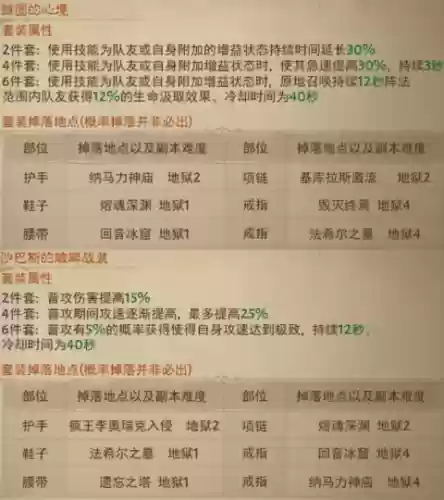 的心境
套装属性
2件套：使用技能为队友或自身附加的增益状态持续时间延长30%
4件套：使用技能为队友或自身附加增益状态时，使其急速提高30%，持续3秒
6件套：使用技能为队友或自身附加增益状态时，原地召唤持续12秒阵法
范围内队友获得12%的生命汲取效果、冷却时间为40秒
套装掉落地点(概率掉落并非必出)
部位 掉落地点以及副本难度 部位 掉落地点以及副本难度
护手 纳马力神庙 地狱2 项链 基库拉斯激流 地狱2
鞋子 熔魂深渊 地狱1 戒指 毁灭终焉 地狱4
腰带 回音冰窟 地狱1 戒指 法希尔之墓 地狱4
沙巴斯的战装
套装属性
2件套：普攻伤害提高15%
4件套：普攻期间攻速逐渐提高，最多提高25%
6件套：普攻有5%的概率获得使得自身攻速达到极致，持续12秒、
冷却时间为40秒
套装掉落地点(概率掉落并非必出)
部位 掉落地点以及副本难度 部位 掉落地点以及副本难度
护手 疯王李奥瑞克入侵 地狱2 项链 熔魂深渊 地狱2
鞋子 法希尔之墓 地狱1 戒指 回音冰窟 地狱4
腰带 遗忘之塔 地狱1 戒指 纳马力神庙 地狱4